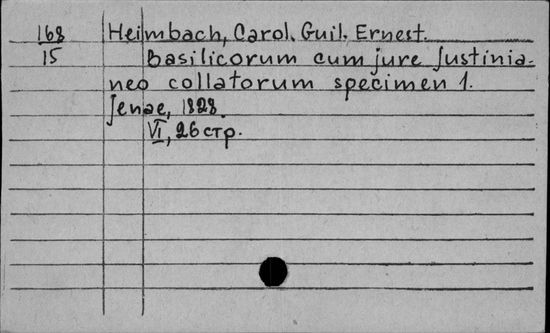 168 Heimbach, Carol. Guil. Ernest.
15 Basilicorum cum jure Justinia-
neo collatorum specimen 1.
Jenae, 1828.
VI, 26 стр.